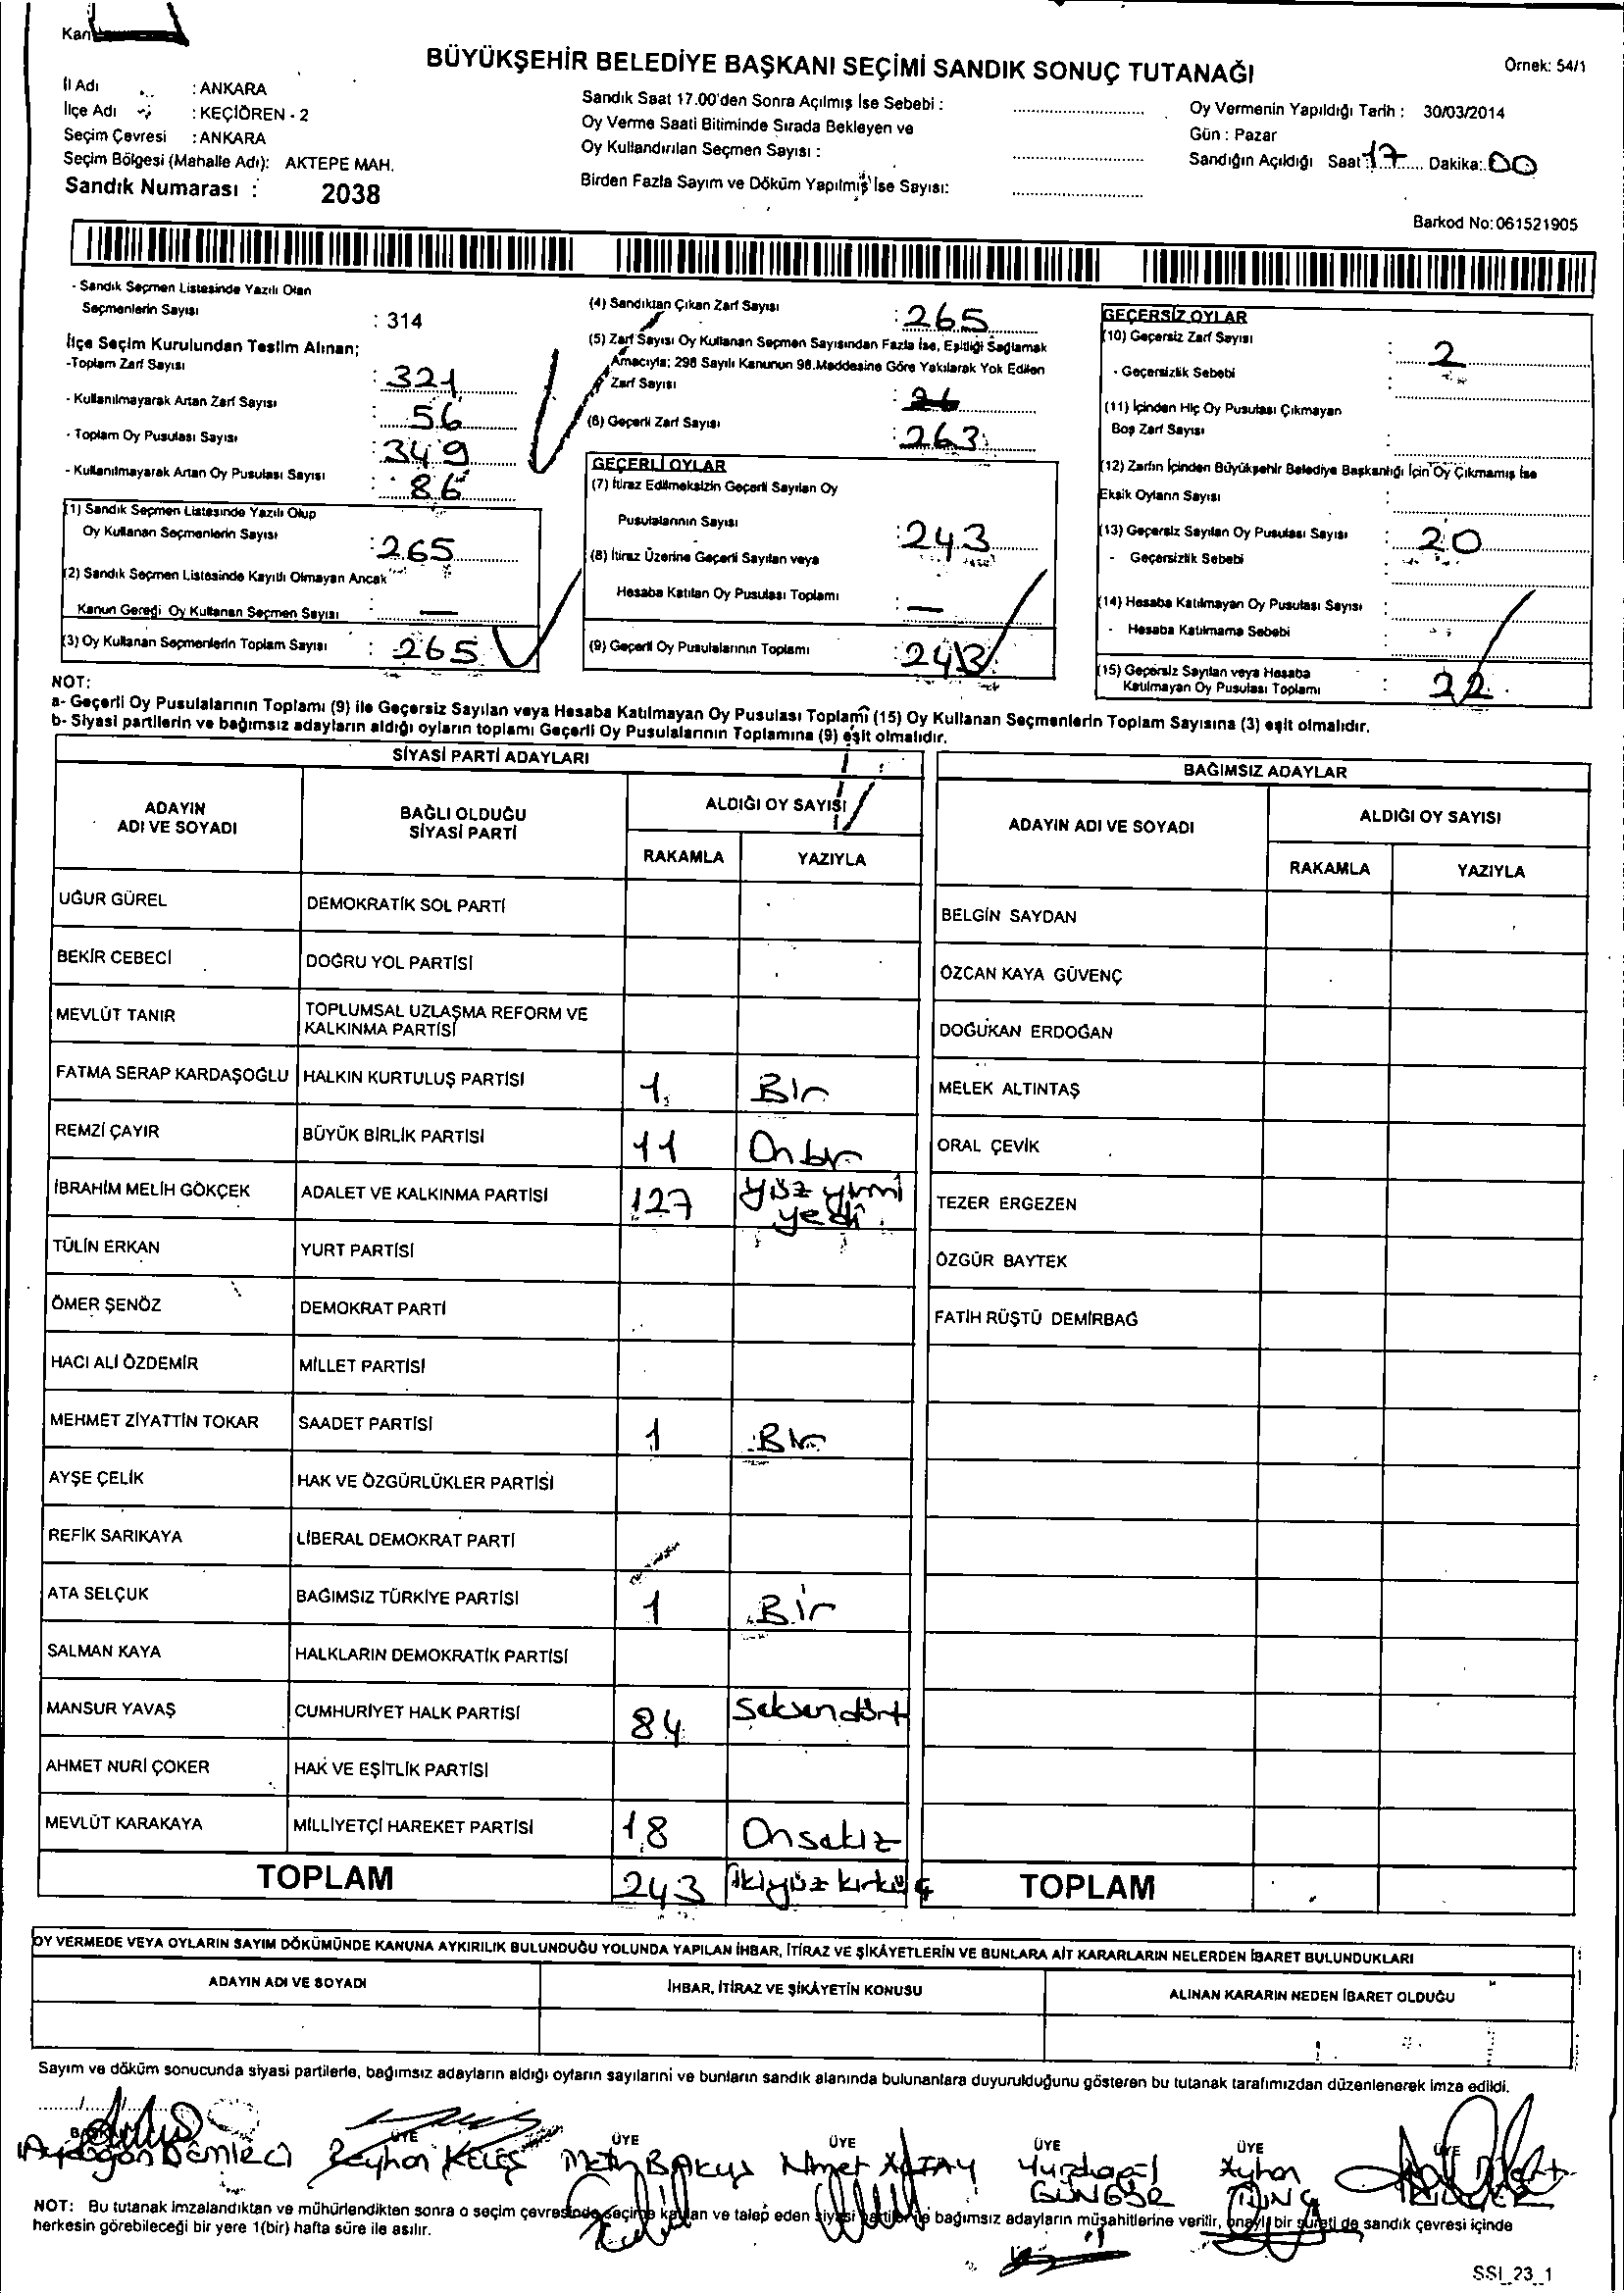 BÜYÜKŞEHİR BELEDİYE BAŞKANI SEÇİMİ SANDIK SONUÇ TUTANAĞI
Örnek: 54/1
İl Adı : ANKARA
İlçe Adı : KEÇİÖREN - 2
Seçim Çevresi : ANKARA
Seçim Bölgesi (Mahalle Adı): AKTEPE MAH.
Sandık Numarası : 2038
Sandık Saat 17.00'den Sonra Açılmış İse Sebebi :
Oy Verme Saati Bitiminde Sırada Bekleyen ve
Oy Kullandırılan Seçmen Sayısı :
Birden Fazla Sayım ve Döküm Yapılmış İse Sayısı:
Oy Vermenin Yapıldığı Tarih : 30/03/2014
Gün : Pazar
Sandığın Açıldığı Saat : 17 Dakika: 00
Barkod No: 061521905
- Sandık Seçmen Listesinde Yazılı Olan
Seçmenlerin Sayısı : 314
İlçe Seçim Kurulundan Teslim Alınan;
-Toplam Zarf Sayısı : 321
- Kullanılmayarak Artan Zarf Sayısı : 56
- Toplam Oy Pusulası Sayısı : 349
- Kullanılmayarak Artan Oy Pusulası Sayısı : 86
(1) Sandık Seçmen Listesinde Yazılı Olup
Oy Kullanan Seçmenlerin Sayısı : 265
(2) Sandık Seçmen Listesinde Kayıtlı Olmayan Ancak
Kanun Gereği Oy Kullanan Seçmen Sayısı : —
(3) Oy Kullanan Seçmenlerin Toplam Sayısı : 265
(4) Sandıktan Çıkan Zarf Sayısı : 265
(5) Zarf Sayısı Oy Kullanan Seçmen Sayısından Fazla İse, Eşitliği Sağlamak
Amacıyla; 298 Sayılı Kanunun 98.Maddesine Göre Yakılarak Yok Edilen
Zarf Sayısı :
(6) Geçerli Zarf Sayısı : 263
GEÇERLİ OYLAR
(7) İtiraz Edilmeksizin Geçerli Sayılan Oy
Pusulalarının Sayısı : 243
(8) İtiraz Üzerine Geçerli Sayılan veya
Hesaba Katılan Oy Pusulası Toplamı : —
(9) Geçerli Oy Pusulalarının Toplamı : 243
GEÇERSİZ OYLAR
(10) Geçersiz Zarf Sayısı : 2
- Geçersizlik Sebebi :
(11) İçinden Hiç Oy Pusulası Çıkmayan
Boş Zarf Sayısı :
(12) Zarfın İçinden Büyükşehir Belediye Başkanlığı İçin Oy Çıkmamış İse
Eksik Oyların Sayısı :
(13) Geçersiz Sayılan Oy Pusulası Sayısı : 20
- Geçersizlik Sebebi :
(14) Hesaba Katılmayan Oy Pusulası Sayısı :
- Hesaba Katılmama Sebebi :
(15) Geçersiz Sayılan veya Hesaba
Katılmayan Oy Pusulası Toplamı : 22
NOT:
a- Geçerli Oy Pusulalarının Toplamı (9) ile Geçersiz Sayılan veya Hesaba Katılmayan Oy Pusulası Toplamı (15) Oy Kullanan Seçmenlerin Toplam Sayısına (3) eşit olmalıdır.
b- Siyasi partilerin ve bağımsız adayların aldığı oyların toplamı Geçerli Oy Pusulalarının Toplamına (9) eşit olmalıdır.
SİYASİ PARTİ ADAYLARI
ADAYIN ADI VE SOYADI
BAĞLI OLDUĞU SİYASİ PARTİ
ALDIĞI OY SAYISI
RAKAMLA YAZIYLA
UĞUR GÜREL DEMOKRATİK SOL PARTİ
BEKİR CEBECİ DOĞRU YOL PARTİSİ
MEVLÜT TANIR TOPLUMSAL UZLAŞMA REFORM VE
KALKINMA PARTİSİ
FATMA SERAP KARDAŞOĞLU HALKIN KURTULUŞ PARTİSİ 1 Bir
REMZİ ÇAYIR BÜYÜK BİRLİK PARTİSİ 11 Onbir
İBRAHİM MELİH GÖKÇEK ADALET VE KALKINMA PARTİSİ 127 yüz yirmi
yedi
TÜLİN ERKAN YURT PARTİSİ
ÖMER ŞENÖZ DEMOKRAT PARTİ
HACI ALİ ÖZDEMİR MİLLET PARTİSİ
MEHMET ZİYATTİN TOKAR SAADET PARTİSİ 1 Bir
AYŞE ÇELİK HAK VE ÖZGÜRLÜKLER PARTİSİ
REFİK SARIKAYA LİBERAL DEMOKRAT PARTİ
ATA SELÇUK BAĞIMSIZ TÜRKİYE PARTİSİ 1 Bir
SALMAN KAYA HALKLARIN DEMOKRATİK PARTİSİ
MANSUR YAVAŞ CUMHURİYET HALK PARTİSİ 84 Seksendört
AHMET NURİ ÇOKER HAK VE EŞİTLİK PARTİSİ
MEVLÜT KARAKAYA MİLLİYETÇİ HAREKET PARTİSİ 18 Onsekiz
TOPLAM 243 ikiyüz kırküç
BAĞIMSIZ ADAYLAR
ADAYIN ADI VE SOYADI
ALDIĞI OY SAYISI
RAKAMLA YAZIYLA
BELGİN SAYDAN
ÖZCAN KAYA GÜVENÇ
DOĞUKAN ERDOĞAN
MELEK ALTINTAŞ
ORAL ÇEVİK
TEZER ERGEZEN
ÖZGÜR BAYTEK
FATİH RÜŞTÜ DEMİRBAĞ
TOPLAM
OY VERMEDE VEYA OYLARIN SAYIM DÖKÜMÜNDE KANUNA AYKIRILIK BULUNDUĞU YOLUNDA YAPILAN İHBAR, İTİRAZ VE ŞİKÂYETLERİN VE BUNLARA AİT KARARLARIN NELERDEN İBARET BULUNDUKLARI
ADAYIN ADI VE SOYADI
İHBAR, İTİRAZ VE ŞİKÂYETİN KONUSU
ALINAN KARARIN NEDEN İBARET OLDUĞU
Sayım ve döküm sonucunda siyasi partilerle, bağımsız adayların aldığı oyların sayılarını ve bunların sandık alanında bulunanlara duyurulduğunu gösteren bu tutanak tarafımızdan düzenlenerek imza edildi.
ÜYE ÜYE ÜYE ÜYE ÜYE ÜYE
Aydoğan Demirci Reyhan KELEŞ Metin BAKUŞ Nimet Yurdagül Ayhan
GÜNGÖR TUNÇ
NOT: Bu tutanak imzalandıktan ve mühürlendikten sonra o seçim çevresinde seçime katılan ve talep eden siyasi partiler ile bağımsız adayların müşahitlerine verilir, onaylı bir sureti de sandık çevresi içinde
herkesin görebileceği bir yere 1(bir) hafta süre ile asılır.
SSI_23_1